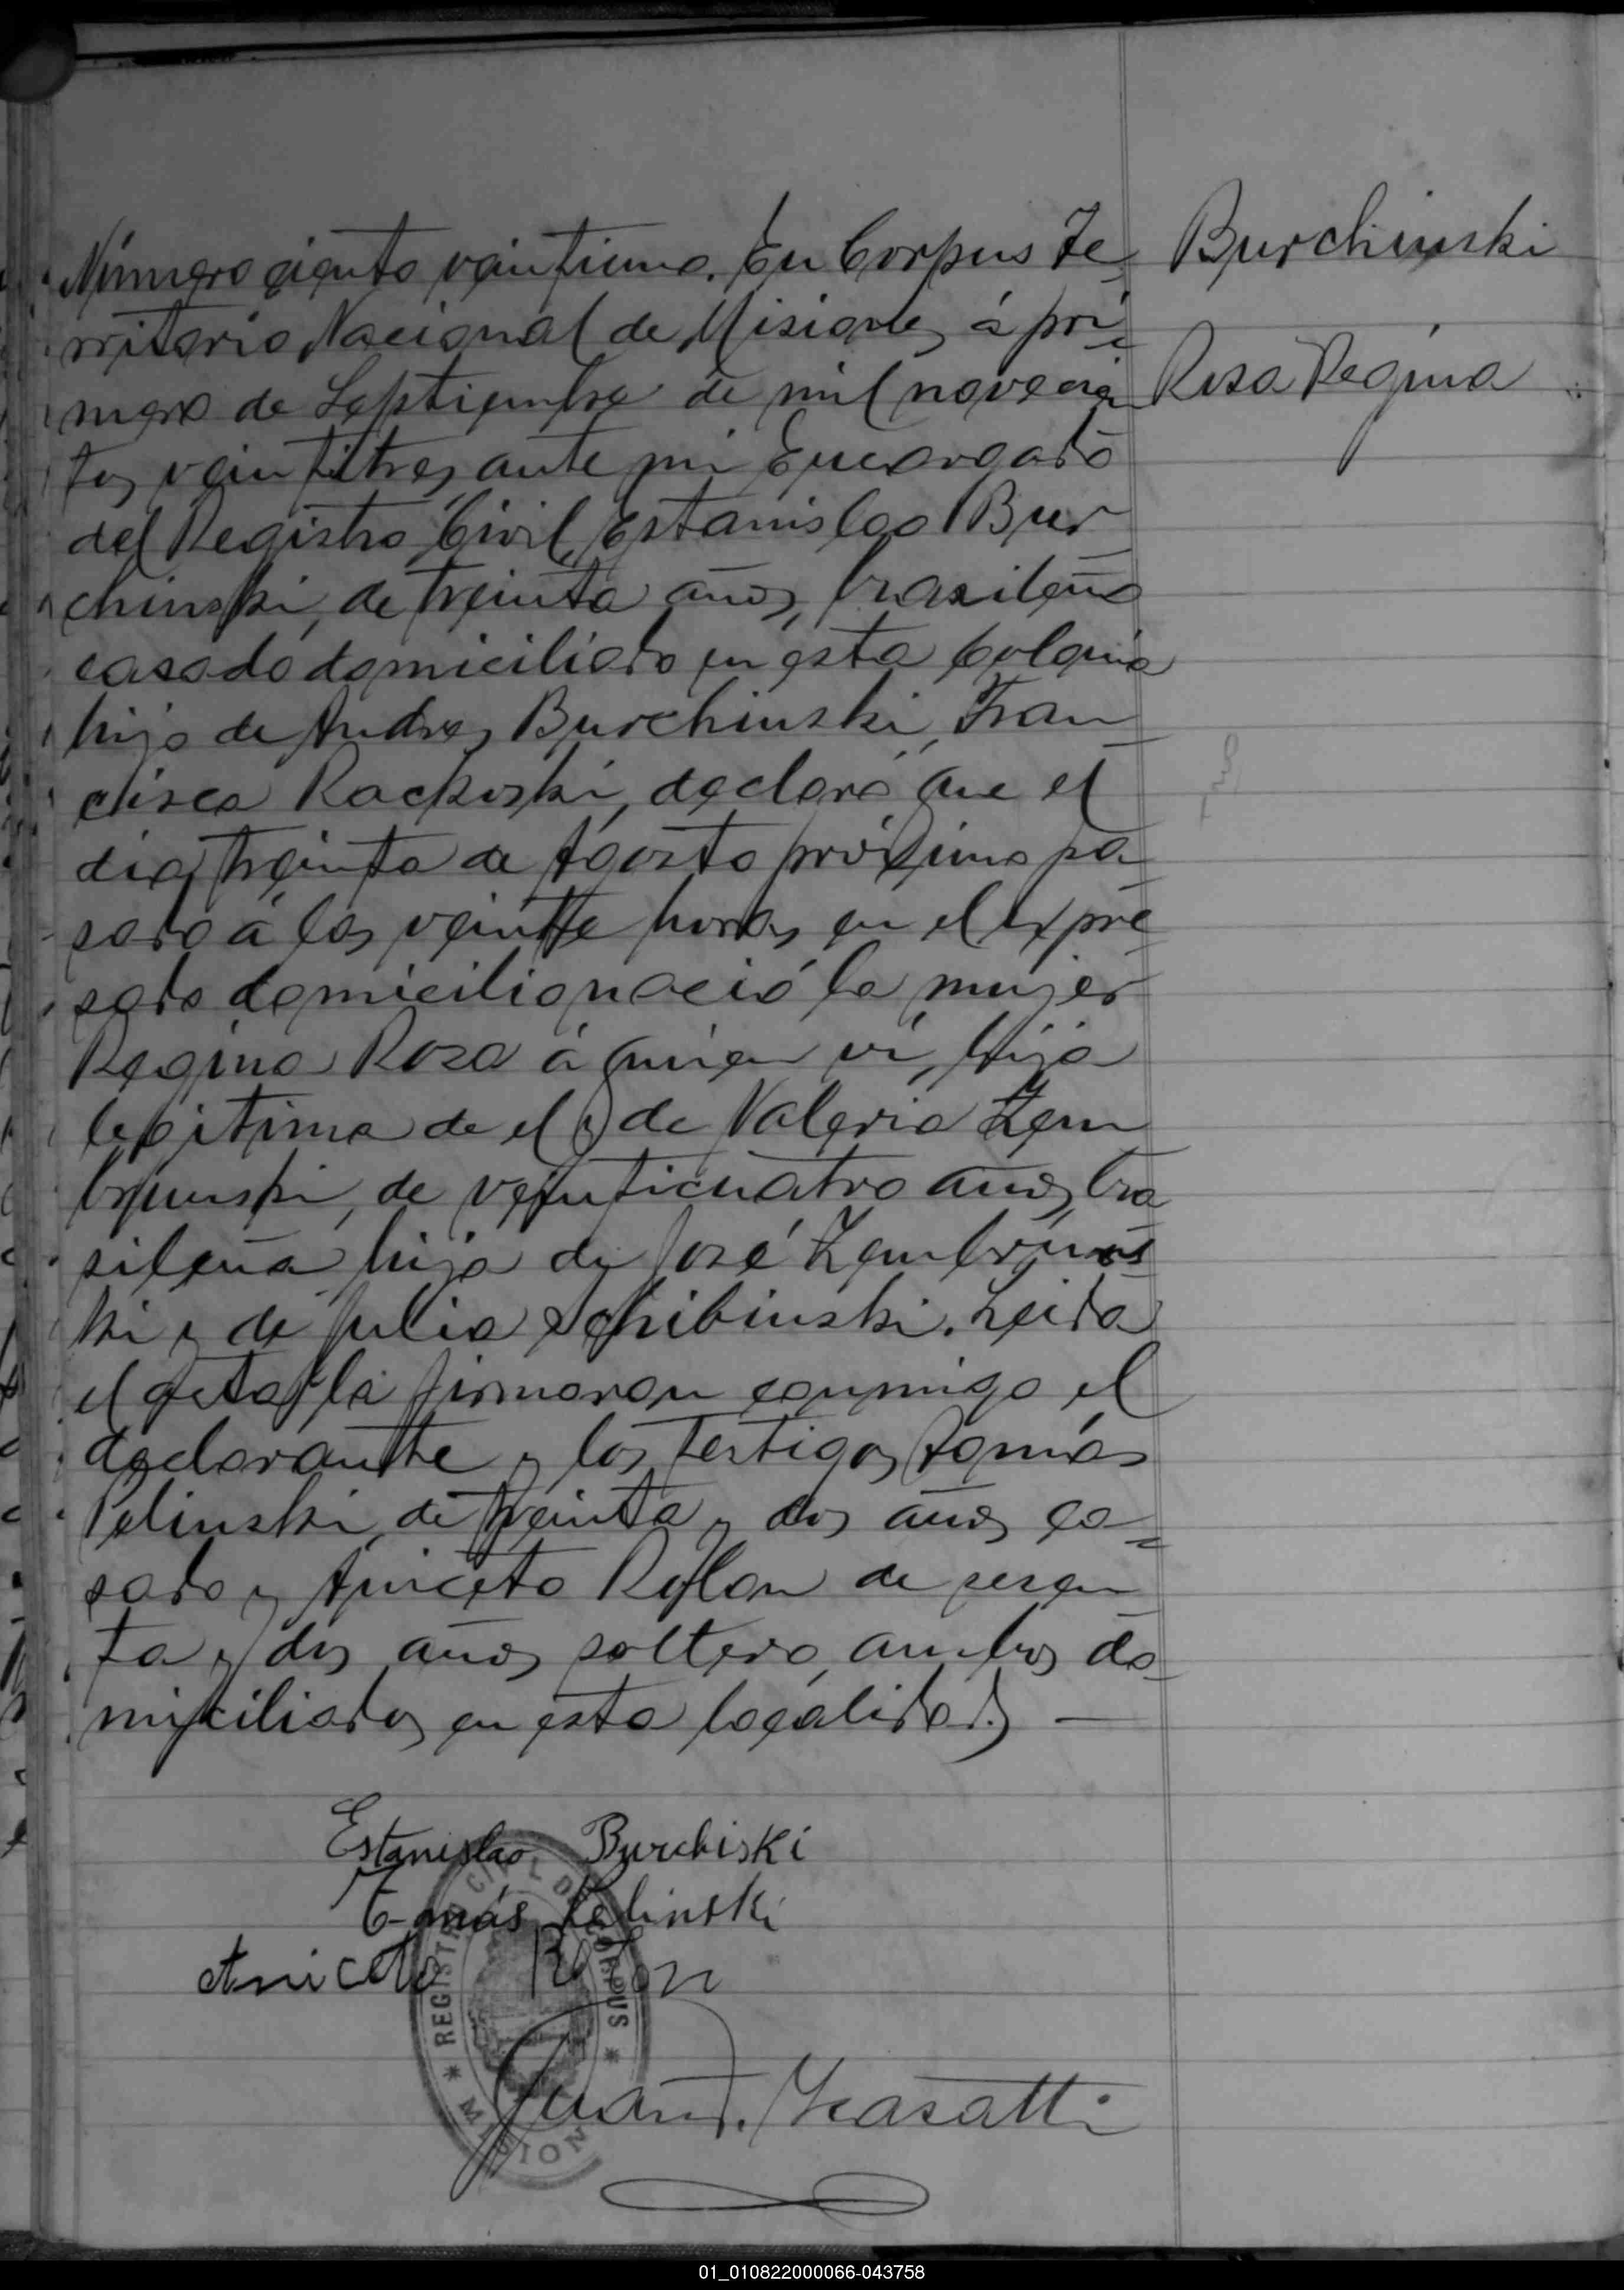 Burchinski
Rosa Regina
Número ciento veintiuno. En Corpus Te
rritorio Nacional de Misiones, á pri-
mero de Septiembre de mil novecien
tos veintitres, ante mi Encargado
del Registro Civil, Estanislao Bur
chinski, de treinta años, brasileño
casado domiciliado en ésta Colonia
hijo de Andres Burchinski, Fran
cisca Rackoski, declaró que el
dia treinta de Agosto próximo pa
sado á las veinte horas, en el expre
sado domicilio nació la mujer
Regina Rosa á quien ví, hija
legitima de el y de Valeria Zem
brzuski, de veinticuatro años, bra
sileña hija de José
ki y de Julia Schibinski. Leida
el acta la firmaron conmigo el
declarante y los testigos, Tomás
Pelinski, de treinta y dos años ca-
sado y Aniceto Rolon de sesen
ta y dos años soltero, ambos do
miciliados en esta localidad. —
Estanislao Burchiski
Tomás Pelinski
Aniceto Rolon
REGISTRO CIVIL DE CORPUS
* MISIONES *
01_010822000066-043758